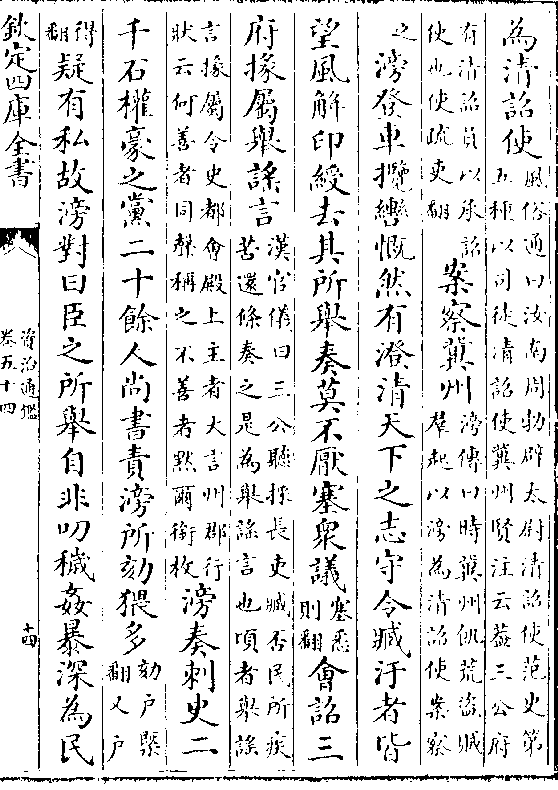 為清詔使風俗通曰汝南周勃辟太尉清詔使范史第五種以司徒清詔使冀州賢注云蓋三公府
有清詔員以承詔使也使疏吏翻案察冀州滂傳曰時冀州飢荒盜賊羣起以滂為清詔使案察
之滂登車攬轡慨然有澄清天下之志守令臧汙者皆
望風解印綬去其所舉奏莫不厭塞衆議塞悉則翻會詔三
府掾屬舉謠言漢官儀曰三公聽採長吏臧否民所疾苦還條奏之是為舉謠言也頃者舉謠
言掾屬令史都會殿上主者大言州郡行狀云何善者同聲稱之不善者黙爾銜枚滂奏刺史二
千石權豪之黨二十餘人尚書責滂所劾猥多劾户槩翻又户
得翻疑有私故滂對曰臣之所舉自非叨穢姦暴深為民
欽定四庫全書
資治通鑑
卷五十四
十四